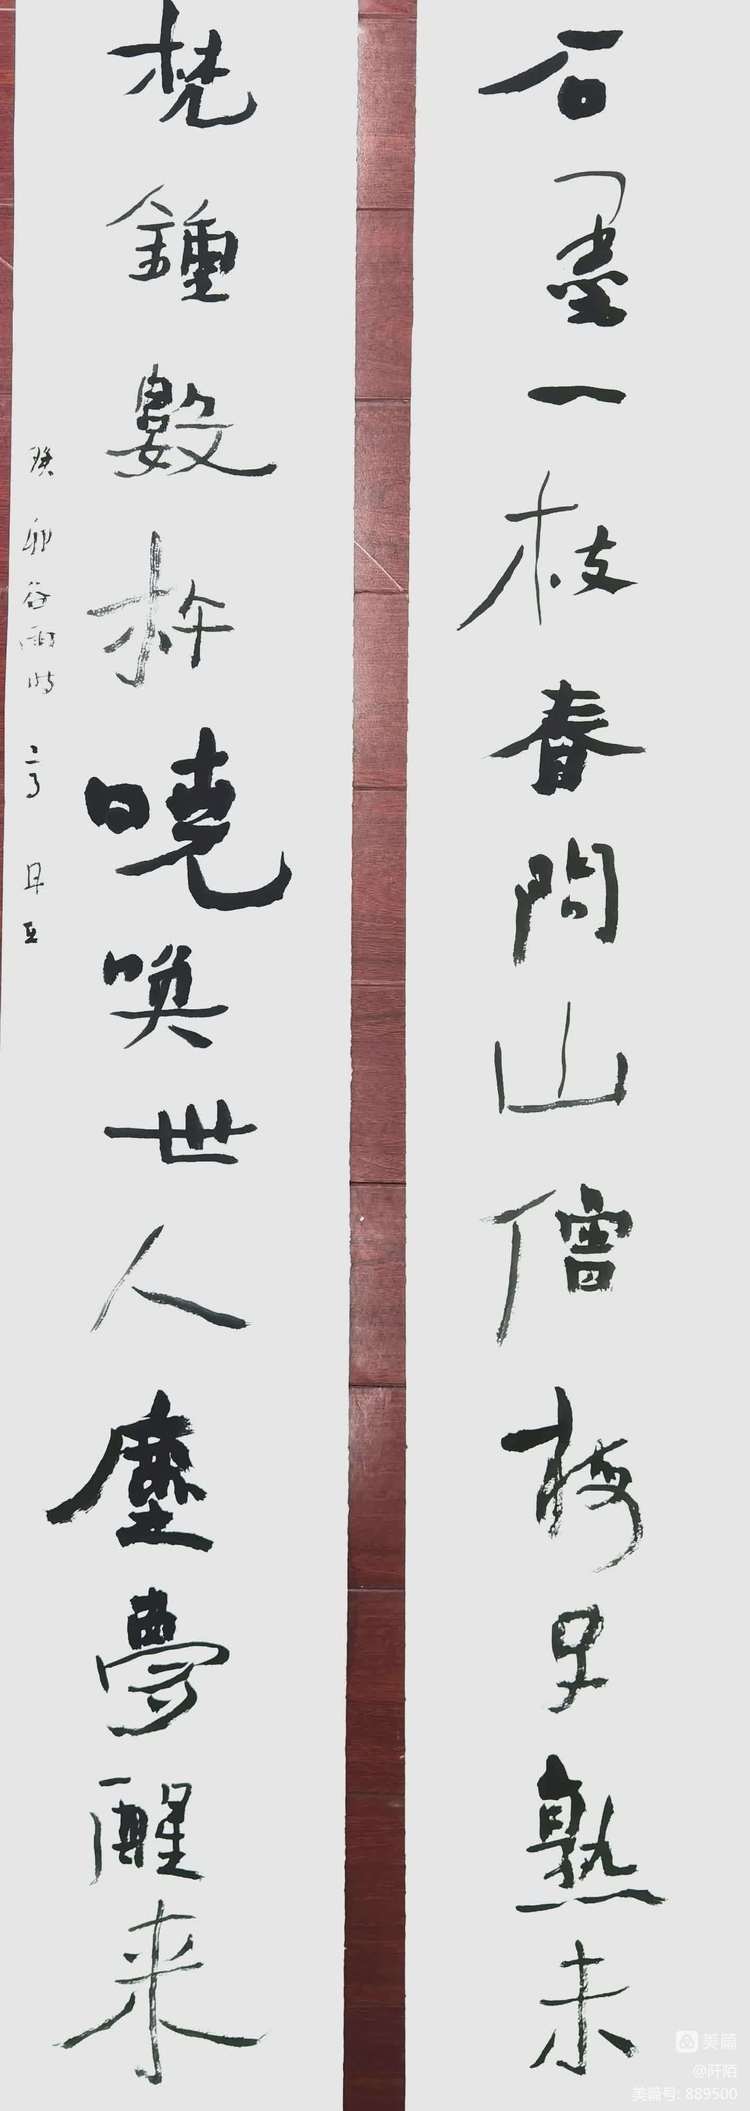 石墨一枝春問山僧梅子熟未
梵鍾數杵曉喚世人塵夢醒来
癸卯谷雨时
美篇
@阡陌
美篇号: 889500